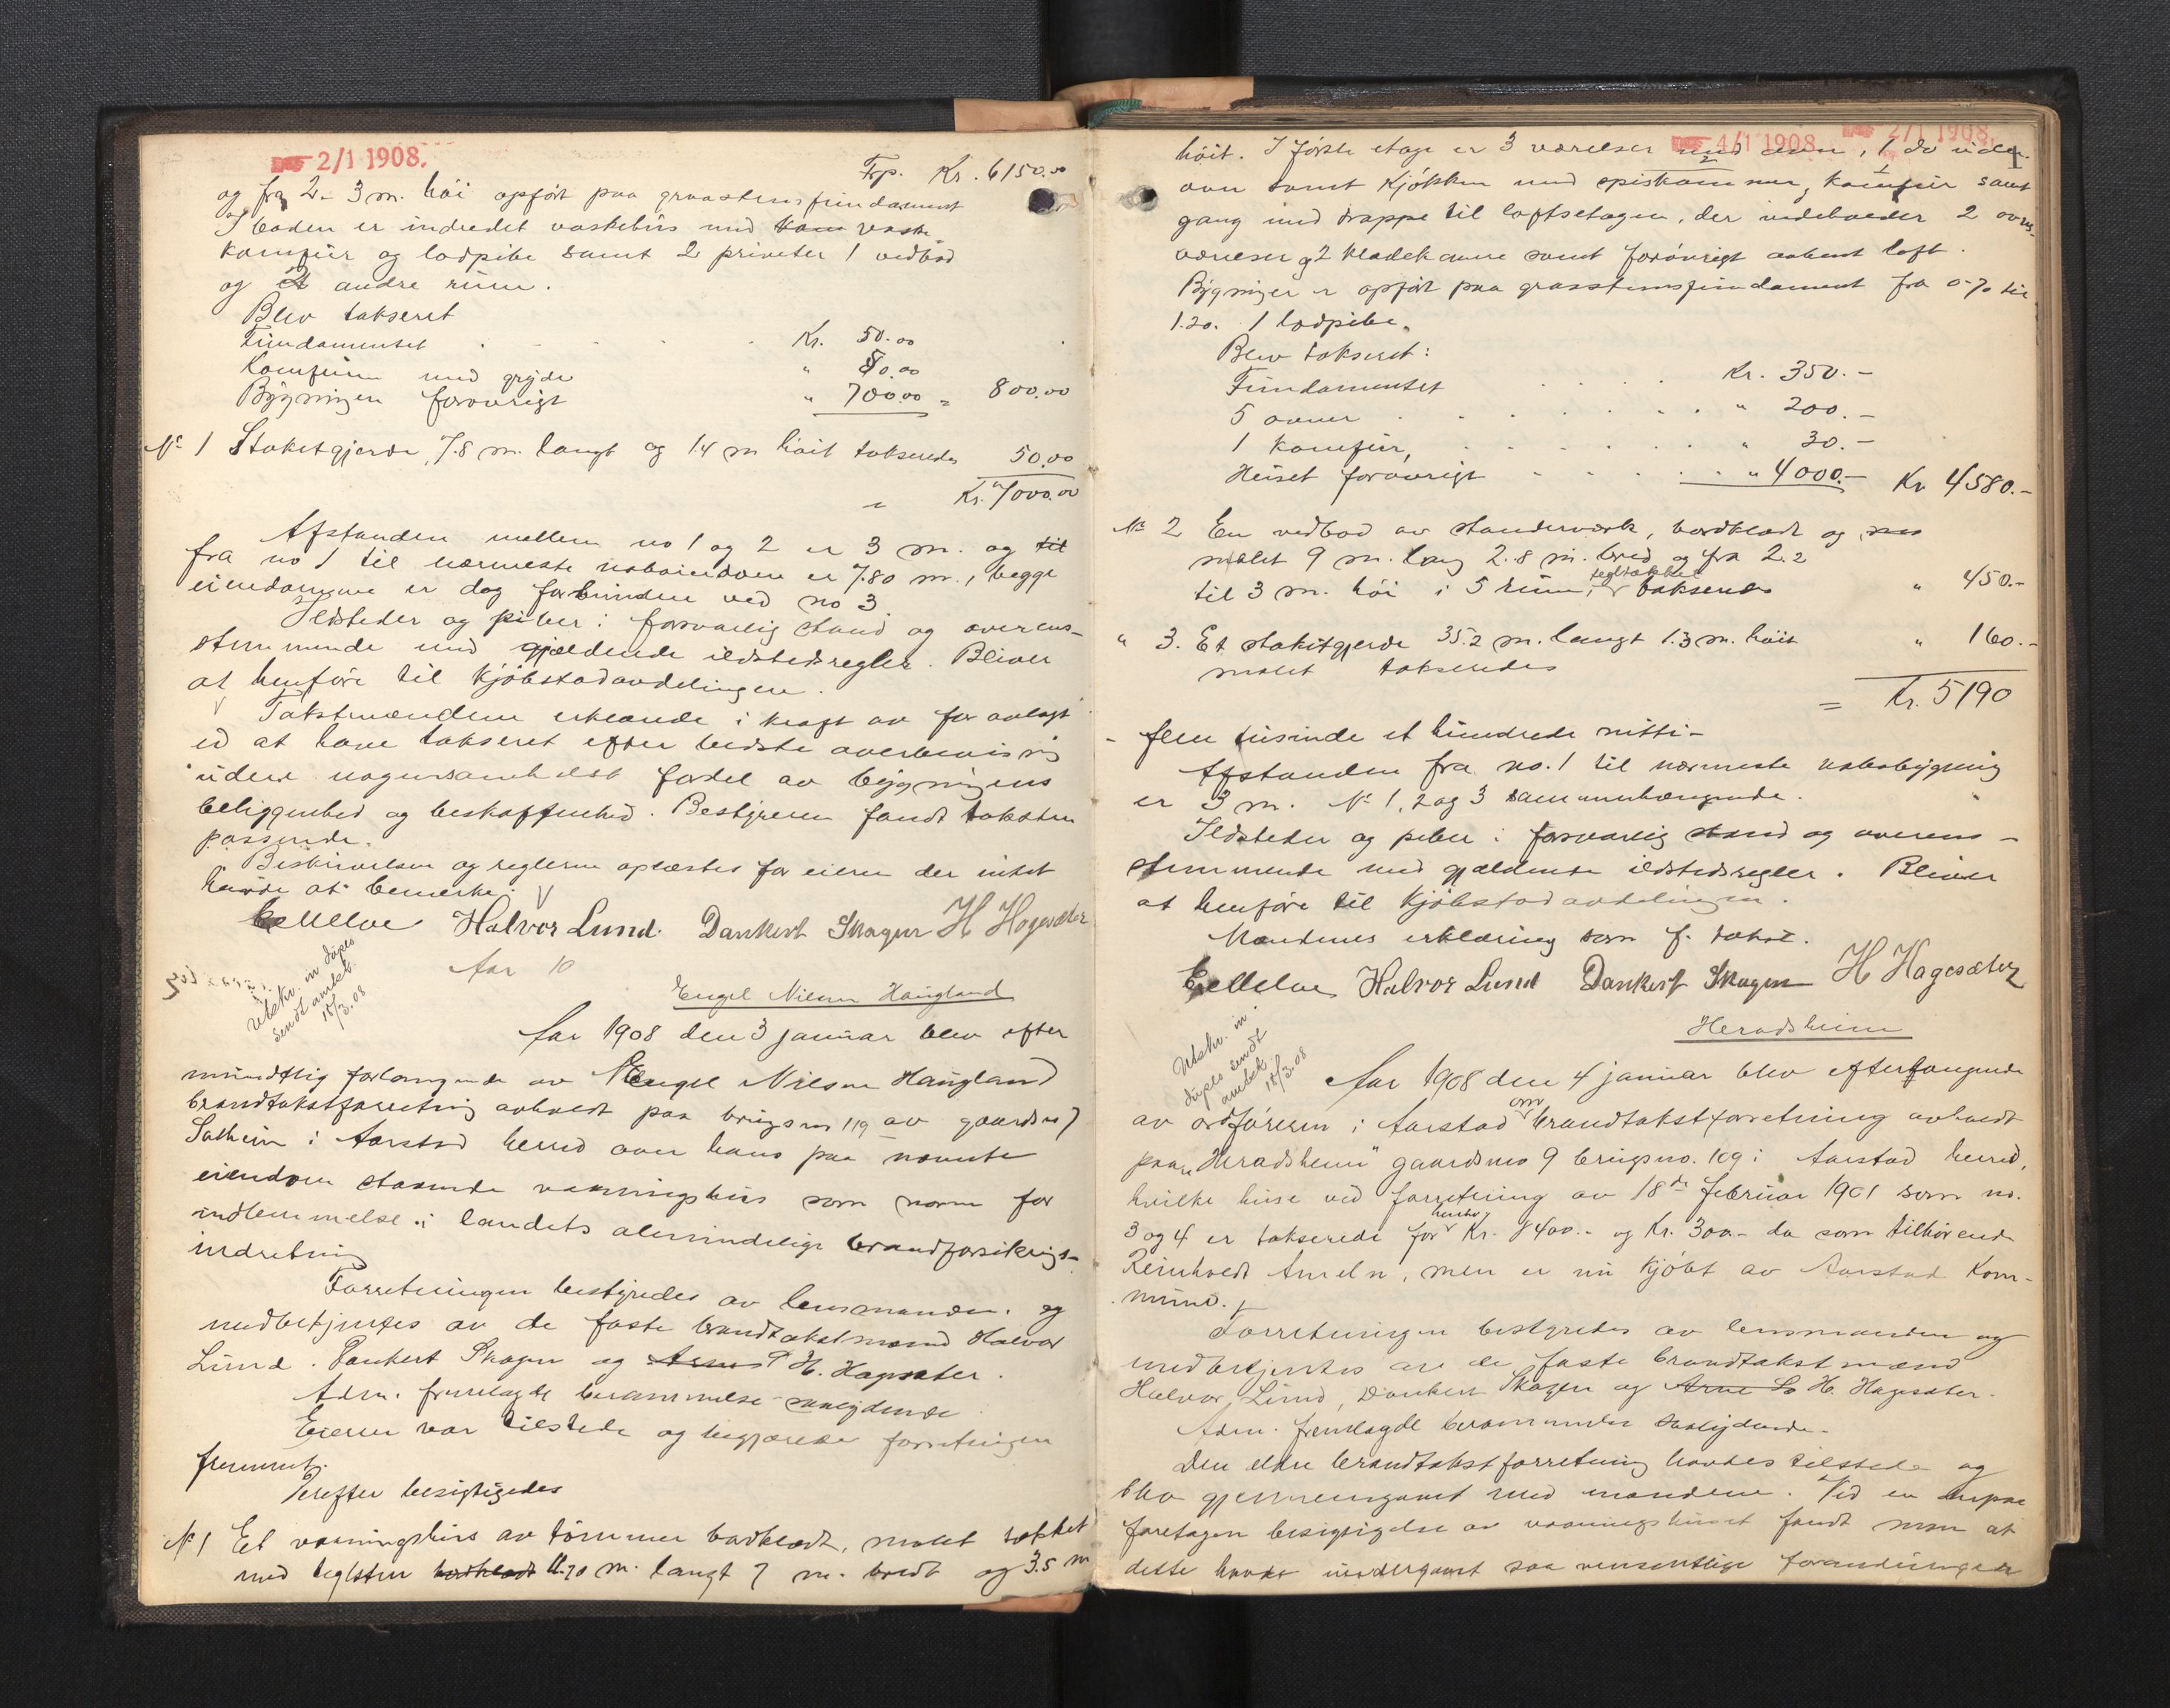 2/1 1908.
Trp. Kr. 6150.00
og fra 2 - 3 m. høi opført paa graastensfundament
I boden er indredet vaskehus med kom vaske
komfur og lodpibe samt 2 priveter 1 vedbod
og 2 andre rum.
Blev takseret
Fundamentet Kr. 50.00
Komfuren med gryde " 50.00
Bygningen forøvrigt " 700.00 = 800.00
No 1 Staketgjerde 7.8 m. langt og 1.4 m høit takseredes 50.00
= Kr. 7000.00
Afstanden mellem no 1 og 2 er 3 m. og til
fra no 1 til nærmeste naboeiendom er 7.80 m., begge
eiendomme er dog forbundne ved no 3.
Ildsteder og piber i forsvarlig stand og overens-
stemmende med gjældende ildstedsregler. Bliver
at henføre til Kjøbstadavdelingen.
Takstmændene erklærede i kraft av før avlagt
ed at have takseret efter bedste overbevisning
uden nogensomhelst fordel av bygningens
beliggenhed og beskaffenhed. Bestyreren fandt taksten
passende.
Beskrivelsen og reglerne oplæstes for eieren der intet
havde at bemerke.
Halvor Lund. Dankert Skagen H Hagesæter
Aar 10
Utskr. in duplo
sendt amtet.
18/3.08
Engel Nilsen Haugland
Aar 1908 den 3 januar blev efter
mundtlig forlangende av Engel Nilsen Haugland
brandtakstforretning avholdt paa brugsno 119 av gaardsno 7
Solheim i Aarstad herred over hans paa nævnte
eiendom staaende vaaningshus som norm for
indlemmelse i landets almindelige brandforsikrings-
indretning
Forretningen bestyredes av lensmanden og
medbetjentes av de faste brandtakstmænd Halvor
Lund. Dankert Skagen og Arne H. Hagesæter.
Adm. fremlagde berammelse saalydende
Eieren var tilstede og begjærede forretningen
fremmet.
Derefter besigtigedes
No 1 Et vaaningshus av tømmer bordklædt, malet tækket
med teglsten bordklædt 11.70 m. langt 7 m. bredt og 3.5 m
4/1 1908. 2/1 1908.
høit. I første etage er 3 værelser med ovn, 1 do uden
ovn samt kjøkken med spiskammer, komfur samt
gang med trappe til loftsetagen, der indeholder 2 ovns-
værelser og 2 klædekamre samt forøvrigt aabent loft.
Bygningen er opført paa graastensfundament fra 0.70 til
1.20. 1 lodpibe.
Blev takseret:
Fundamentet Kr. 350.-
5 ovner " 200.-
1 komfur, " 30.-
Huset forøvrigt " 4000.- Kr 4580.-
No 2 En vedbod av standerværk, bordklædt og
malet 9 m. lang 2.8 m. bred og fra 2.2
til 3 m. høi i 5 rum, tegltækket takseredes " 450.-
" 3. Et stakitgjerde 35.2 m. langt 1.3 m. høit
malet takseredes " 160.-
= Kr. 5190
- fem tusinde et hundrede nitti -
Afstanden fra no. 1 til nærmeste nabobygning
er 3 m. No 1, 2 og 3 sammenhængende.
Ildsteder og piber i forsvarlig stand og overens-
stemmende med gjældende ildstedsregler. Bliver
at henføre til Kjøbstadavdelingen.
Mændenes erklæring som f. takst.
Halvor Lund Dankert Skagen H Hagesæter
Utskr. in
duplo sendt
amtet.
18/3.08
Heradsheim
Aar 1908 den 4 januar blev efter forlangende
av ordføreren i Aarstad om brandtakstforretning avholdt
paa „Heradsheim" gaardsno 9 brugsno. 109 i Aarstad herred,
hvilke huse ved forretning av 18de februar 1901 som no.
3 og 4 er takserede for henhv. Kr. 8400.- og Kr. 300.- da som tilhørende
Reinholdt Ameln, men er nu kjøbt av Aarstad Kom-
mune.
Forretningen bestyredes av lensmanden og
medbetjentes av de faste brandtakstmænd
Halvor Lund, Dankert Skagen og Arne Lo H. Hagesæter.
Adm. fremlagde berammelse saalydende.
Den eldre brandtakstforretning havdes tilstede og
blev gjennemgaaet med mændene. Ved en
foretagen besigtigelse av vaaningshuset fandt man at
dette havde undergaaet saa væsentlige forandringer